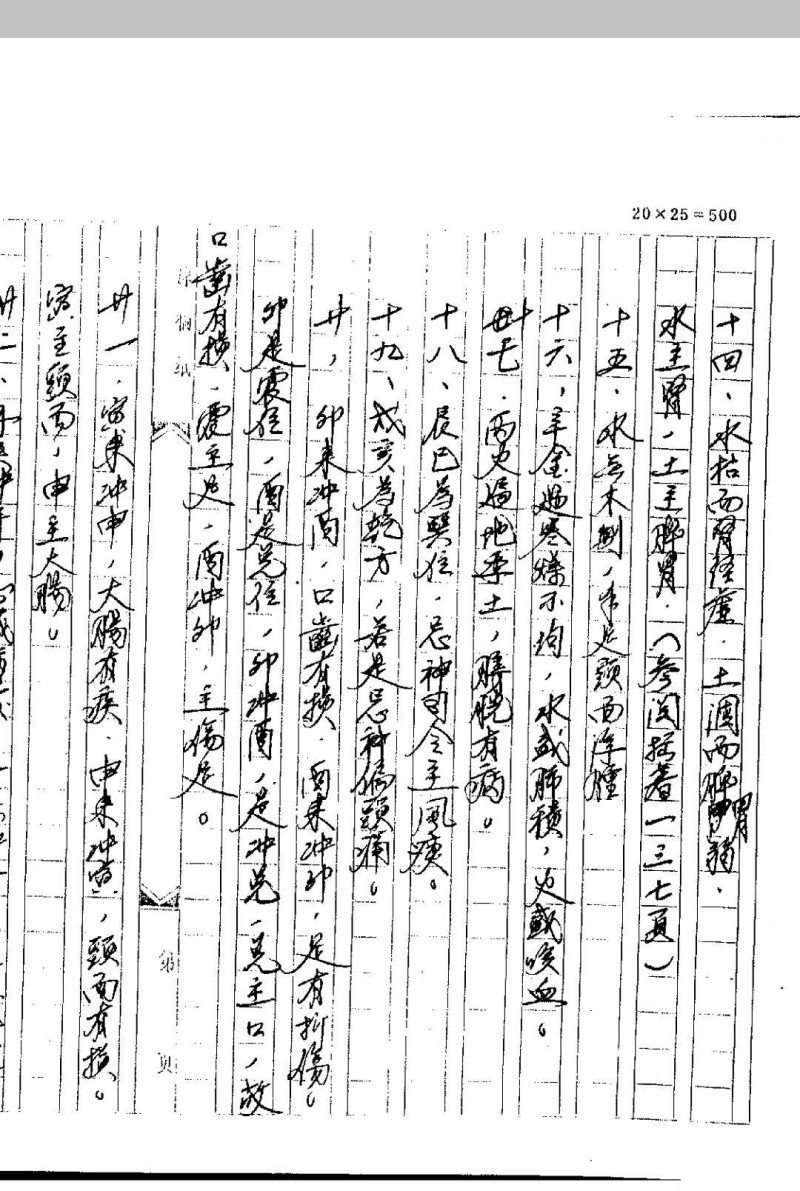 20×25=500
十四、水枯而腎经虛．土涸而脾胃弱．
水主腎，土主脾胃．（参阅拙着一三七頁）
十五．水三木剋，手足頭面浮腫
十六，辛金遇寒燥不均，水盛肺積，火盛咳血。
十七．丙火逼地焦土，膀胱有病。
十八、辰巳為巽位．忌神司令主風痰。
十九、戌亥為乾方，若是忌神偏頭痛。
廿，卯来冲酉，口齒有損．酉来冲卯，足有折傷。
卯是震位，酉是兑位，卯冲酉，是冲兑，兑主口，故
口齒有損．震主足，酉冲卯，主傷足。
稿纸
第 页
廿一．寅来冲申，大腸有疾．申来冲寅，頭面有損。
寅主頭面，申主大腸。
廿二、